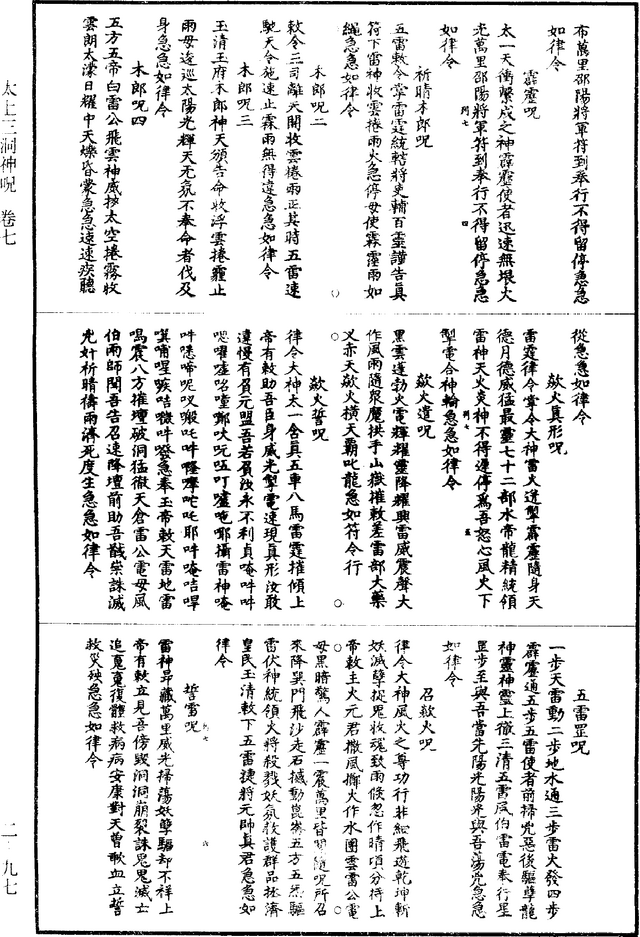 太上三洞神呪　卷七
布萬里邵陽將軍符到奉行不得留停急急
如律令
霹靂呪
太一天衝繫成之神霹靂使者迅速無垠火
光萬里邵陽將軍符到奉行不得留停急急
如律令
祈晴木郎呪
五雷敕令掌雷霆統轄將吏輔百靈謹告真
符下雷神收雲捲雨火急停毋使霖霪雨如
繩急急如律令
木郎呪二
敕令三司離天開收雲捲雨正其時五雷速
馳天令施速止霖雨無得違急急如律令
木郎呪三
玉清王府木郎神天頒告命收浮雲捲靈止
雨毋逡巡太陽光輝天无氛不奉命者伐及
身急急如律令
木郎呪四
五方五帝白雷公飛雲神威掞太空捲霧收
雲朗太濛日耀中天爍昏蒙急急速速疾聽
從急急如律令
歘火真形呪
雷霆律令掌令大神雷火逆掣霹靂隨身天
德月德威猛最靈七十二部水帝龍精統領
雷神天火炎神不得遲停爲吾怒心風火下
掣電合神輪急急如律令
歘火遣呪
黑雲運勃火電輝耀靈降耀興雷威震聲大
作風雨隨衆魔拱手山嶽摧敕差雷部大藥
叉赤天歘火橫天霸叱龍急如符令行
歘火誓呪
律令大神太一含真五車八馬雷霆摧傾上
帝有敕助吾臣身威光掣電速現真形汝敢
違慢有負元盟吾若負汝永不利貞唵吽吽
吽嘻啼呢
鳴震八方摧壇破洞猛徹天倉雷公電母風
伯雨師聞吾告召速降壇前助吾戩祟誅滅
光奸祈晴禱雨濟死度生急急如律令
五雷罡呪
一步天雷動二步地水通三步雷火發四步
霹靂通五步五雷使者前掃兇惡後驅孽龍
神靈神靈上徹三清五雷風伯雷電奉行星
罡步至與吾當先陽光陽光與吾蕩兇急急
如律令
召歘火呪
律令大神風火之尊功行非細飛遊乾坤斬
妖滅孽捉鬼收魂致雨倏忽作晴頃分持上
帝敕主火元君撒風擲火作水團雲雷公電
母黑暗驚人霹靂一震萬里皆聞隨呪所召
來降巽門飛沙走石撼動崑崙五方五炁驅
雷伏神統領火將殺戮妖氛救護群品拯濟
皇民玉清敕下五雷捷將元帥真君急急如
律令
誓雷呪
雷神昂藏萬里威光掃蕩妖孽驅却不祥上
帝有敕立見吾傍毀洞洞崩裂誅鬼鬼滅亡
追魔魔復體救病病安康對天曾歃血立誓
救災殃急急如律令
二·九七